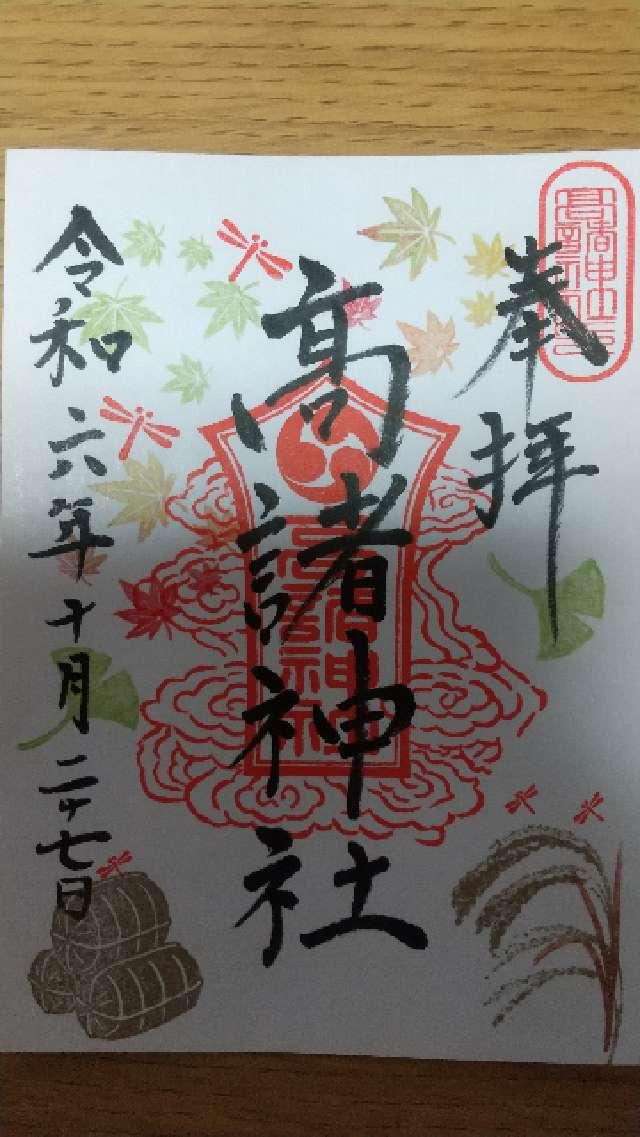 奉拝
高諸神社
令和六年十月二十七日
高諸神社